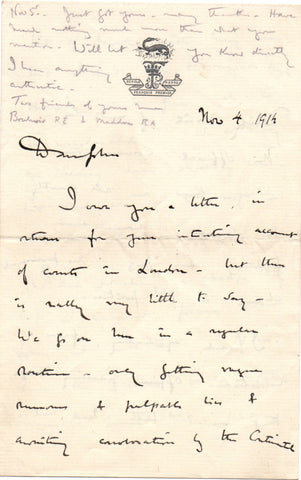 Nov 5. Just got yours - many thanks. Have
heard nothing much more than what you
mention. Will let you know directly
I hear anything
authentic.
Two friends of yours
R E & R A
Nov 4 1914
Dear John
I owe you a letter in
return for your interesting account
of events in London - but there
is really very little to say -
We go on here in a regular
routine - only getting vague
rumours & palpable lies &
awaiting corroboration by the